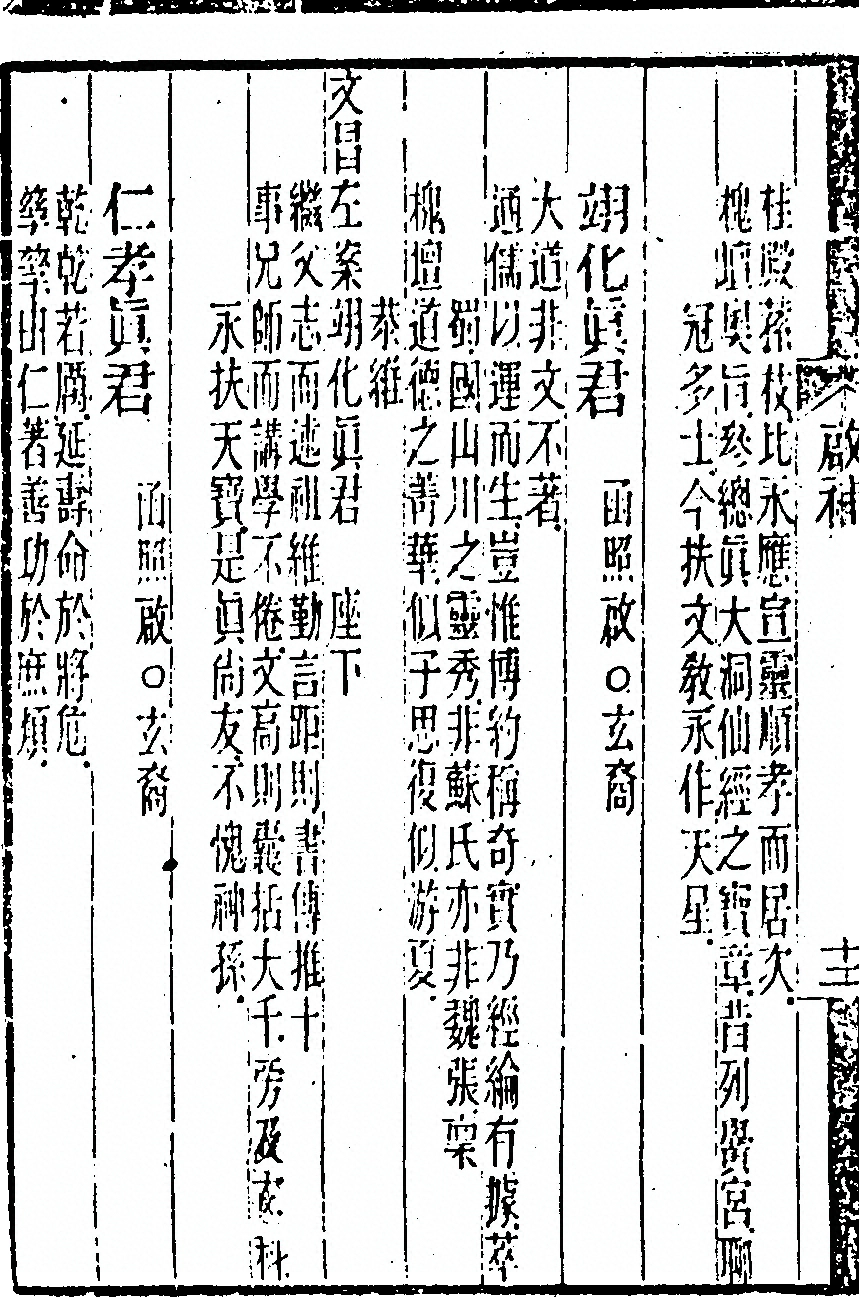 啟神
十三
桂殿蓀枝比永應宣靈順孝而居次
槐壇奧旨參總眞大洞仙經之寶章昔列黌宮聊
冠多士今扶文敎永作天星
函照啟○玄裔
翊化眞君
大道非文不著
通儒以運而生豈惟博約稱奇實乃經綸有據萃
蜀國山川之靈秀非蘇氏亦非魏張禀
槐壇道德之菁華似子思復似游夏
恭維
文昌左案翊化眞君 座下
繼父志而述祖維勤言距則書傳推十
事兄師而講學不倦文高則囊括大千旁及玄科
永扶天寶是眞尚友不愧神孫
函照啟○玄裔
仁孝眞君
乾乾若厲延壽命於將危
孳孳由仁著善功於庶類